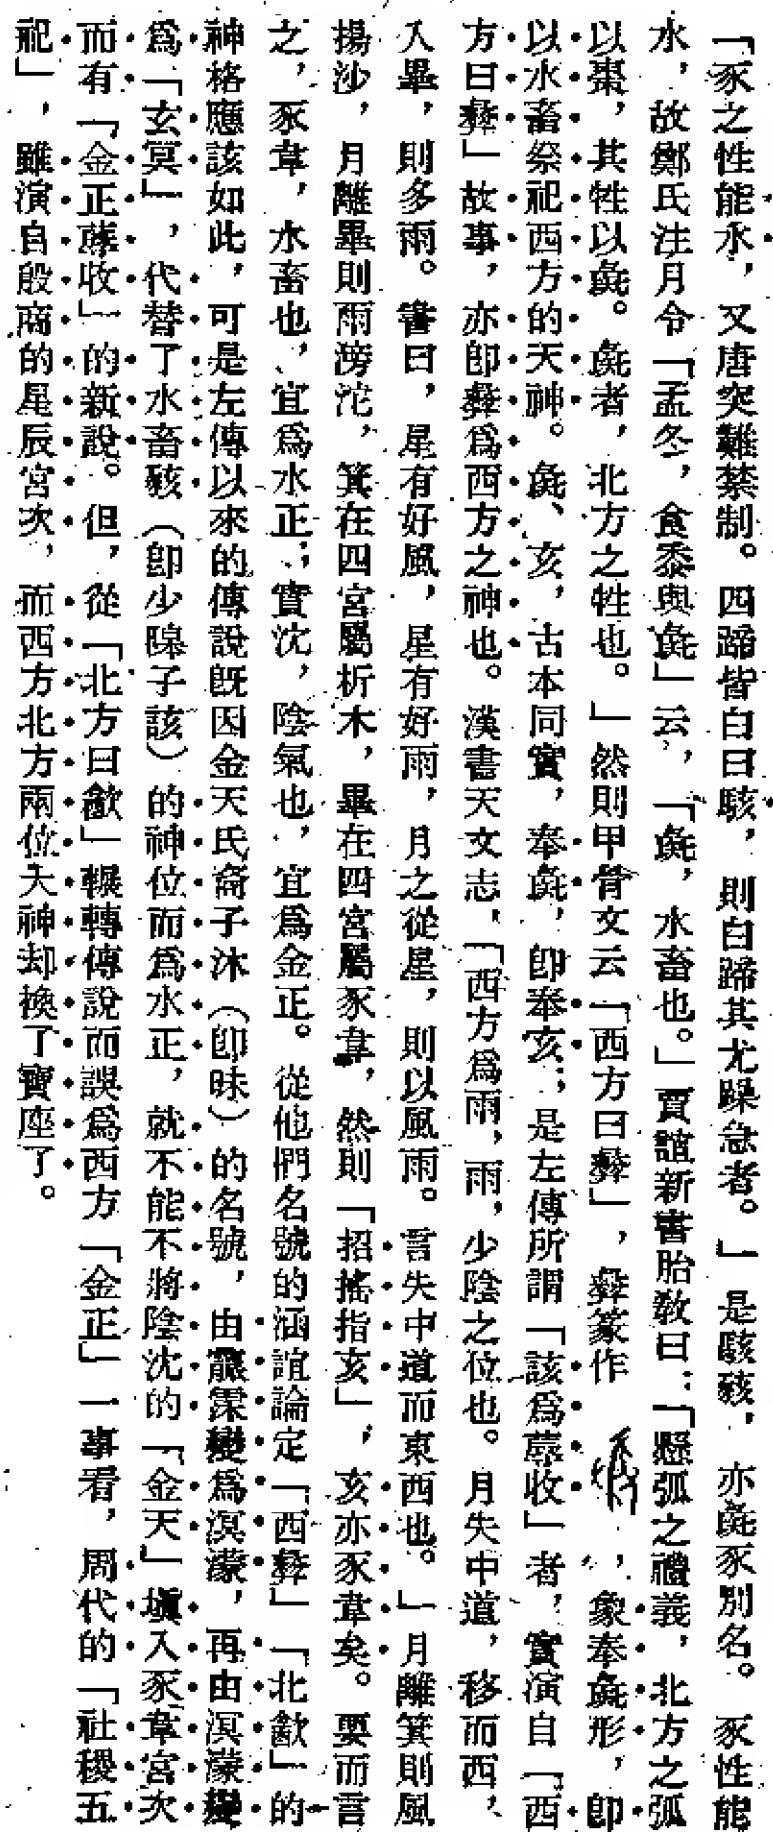 「豕之性能水，又唐突難禁制。四蹄皆白曰駭，則白蹄其尤躁急者。」是駭豥，亦彘豕別名。豕性能
水，故鄭氏注月令「孟冬，食黍與彘」云，「彘，水畜也。」賈誼新書胎敎曰：「懸弧之禮義，北方之弧
以棗，其牲以彘。彘者，北方之牲也。」然則甲骨文云「西方曰彝」，彝篆作，象奉彘形，卽
以水畜祭祀西方的天神。彘、亥，古本同實，奉彘，卽奉亥；是左傳所謂「該爲蓐收」者，實演自「西
方曰彝」故事，亦卽彝爲西方之神也。漢書天文志，「西方爲雨，雨，少陰之位也。月失中道，移而西，
入畢，則多雨。書曰，星有好風，星有好雨，月之從星，則以風雨。言失中道而東西也。」月離箕則風
揚沙，月離畢則雨滂沱，箕在四宮屬析木，畢在四宮屬豕韋，然則「招搖指亥」，亥亦豕韋矣。要而言
之，豕韋，水畜也，宜爲水正；實沈，陰氣也，宜爲金正。從他們名號的涵誼論定「西彝」「北歙」的
神格應該如此，可是左傳以來的傳說旣因金天氏裔子沬（卽昧）的名號，由霥霂變爲溟濛，再由溟濛變
爲「玄冥」，代替了水畜豥（卽少皞子該）的神位而爲水正，就不能不將陰沈的「金天」塡入豕韋宮次
而有「金正蓐收」的新說。但，從「北方曰歙」輾轉傳說而誤爲西方「金正」一事看，周代的「社稷五
祀」，雖演自殷商的星辰宮次，而西方北方兩位大神却換了寶座了。